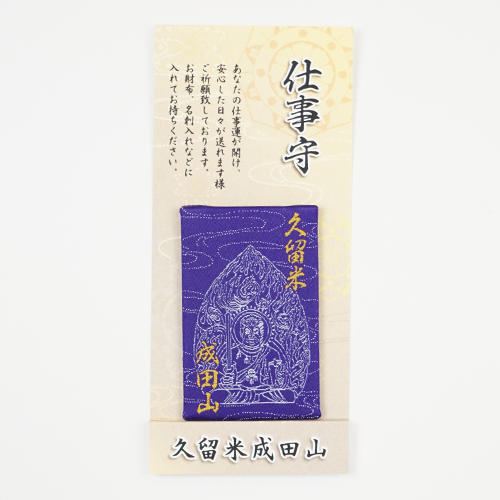 仕事守
あなたの仕事運が開け、
安心した日々が送れます様
ご祈願致しております。
お財布、名刺入れなどに
入れてお持ちください。
久留米
成田山
久留米成田山